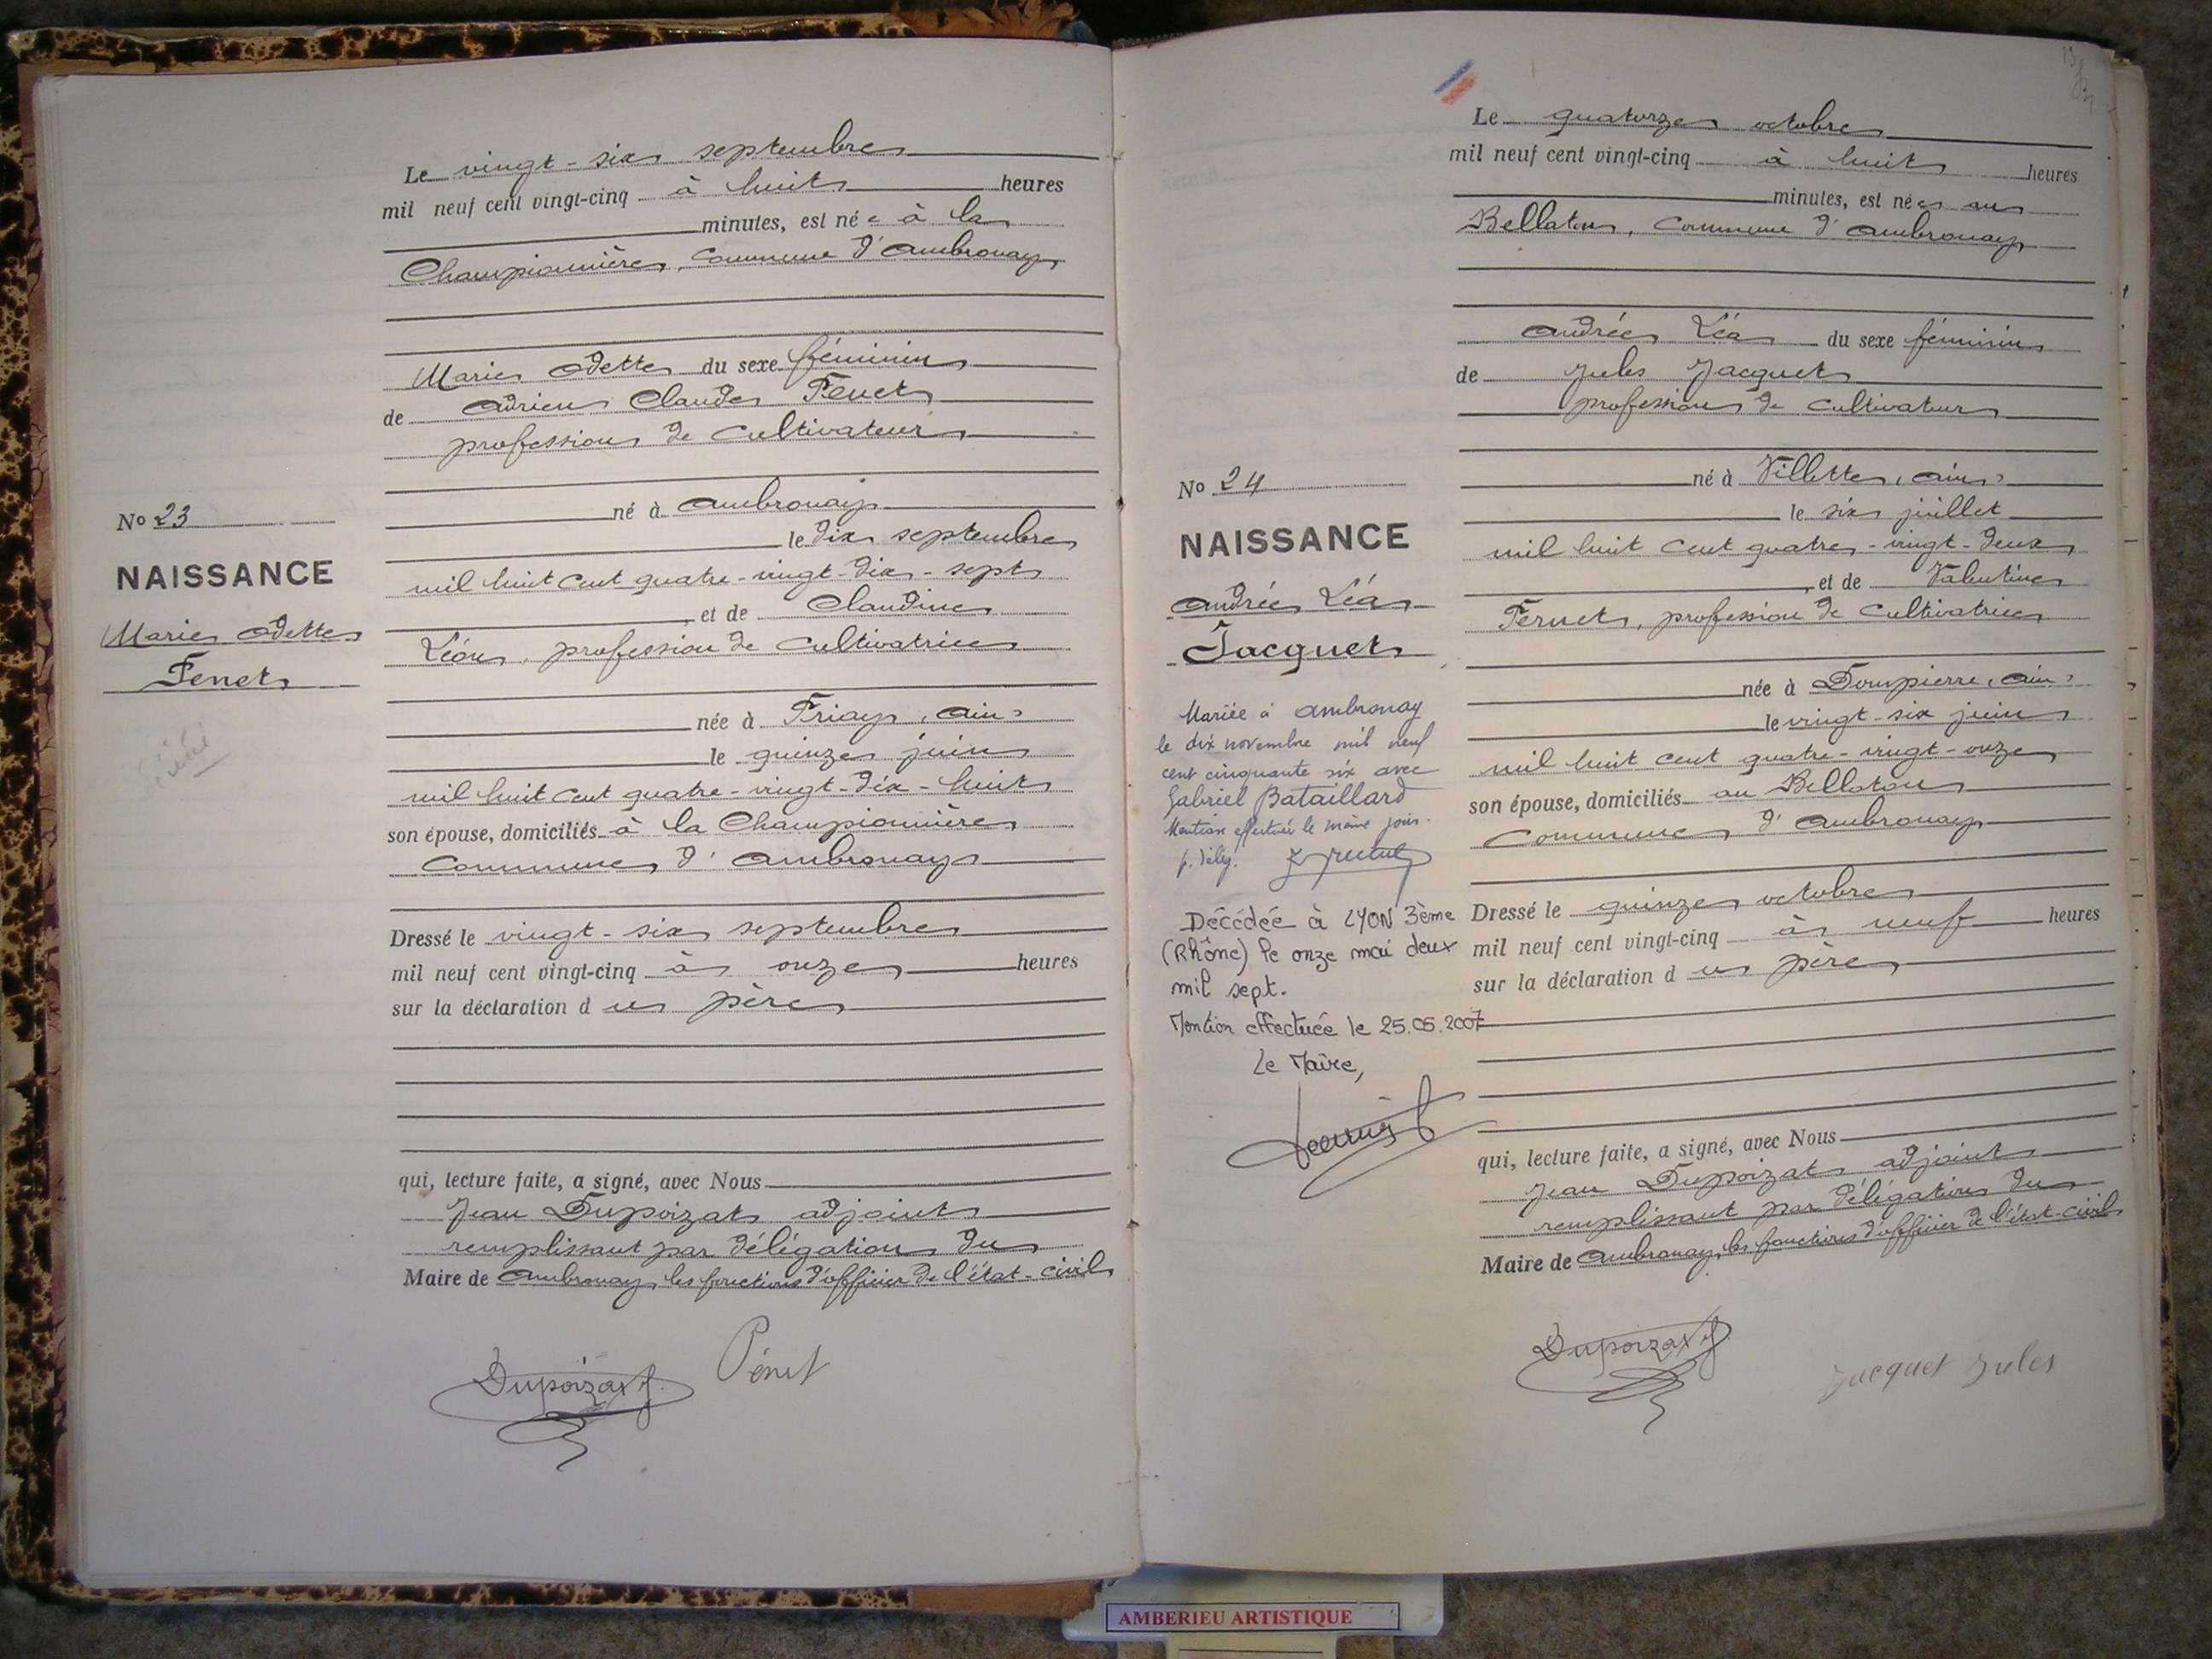 Le vingt-six septembre
mil neuf cent vingt-cinq à huit heures
minutes, est née à la
Championnière, Commune d'Ambronay
Marie Odette du sexe féminin
de Adrien Claude Penet
profession de Cultivateur
né à Ambronay
le dix septembre
mil huit cent quatre-vingt-dix-sept
, et de Claudine
Léon, profession de Cultivatrice
née à Priay, Ain,
le quinze juin
mil huit cent quatre-vingt-dix-huit
son épouse, domiciliés à la Championnière
Commune d'Ambronay
Dressé le vingt-six septembre
mil neuf cent vingt-cinq à onze heures
sur la déclaration du père
qui, lecture faite, a signé, avec Nous
Jean Dupoizat adjoint
remplissant par délégation du
Maire de Ambronay, les fonctions d'officier de l'état-civil
Dupoizat J.
Pénet
No 23
NAISSANCE
Marie Odette
Penet
Le quatorze octobre
mil neuf cent vingt-cinq à huit heures
minutes, est née au
Bellaton, Commune d'Ambronay
Andrée Léa du sexe féminin
de Jules Jacquet
profession de Cultivateur
né à Villette, Ain,
le six juillet
mil huit cent quatre-vingt-deux
, et de Valentine
Pernet, profession de Cultivatrice
née à Dompierre, Ain,
le vingt-six juin
mil huit cent quatre-vingt-onze
son épouse, domiciliés au Bellaton
Commune d'Ambronay
Dressé le quinze octobre
mil neuf cent vingt-cinq à neuf heures
sur la déclaration du père
qui, lecture faite, a signé, avec Nous
Jean Dupoizat adjoint
remplissant par délégation du
Maire de Ambronay, les fonctions d'officier de l'état-civil
Dupoizat J
Jacquet Jules
No 24
NAISSANCE
Andrée Léa
Jacquet
Mariée à Ambronay
le dix novembre mil neuf
cent cinquante six avec
Gabriel Bataillard
Mention effectuée le même jour.
p. délég.
Décédée à LYON 3ème
(Rhône) le onze mai deux
mil sept.
Mention effectuée le 25.05.2007
Le Maire,
AMBERIEU ARTISTIQUE